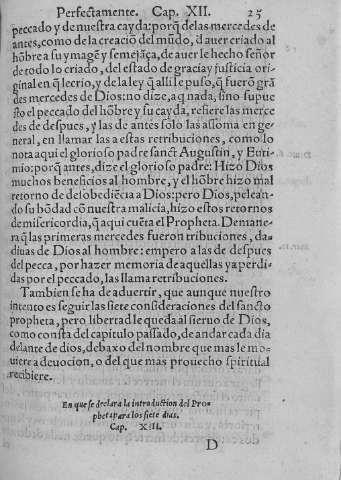 Perfectamente. Cap. XII. 25
peccado y de nuestra cayda: porq̃ de las mercedes de
antes, como de la creaciõ del mũdo, d auer criado al
hõbre a su ymagẽ y semejãça, de auer le hecho señor
de todo lo criado, del estado de gracia y justicia ori
ginal en q̃ le crio, y de la ley q̃ alli le puso, q̃ fuerõ grã
des mercedes de Dios: no dize, aq̃ nada, sino supue
sto el peccado del hõbre y su cayda, refiere las merce
des de despues, y las de antes sólo las assoma en ge-
neral, en llamar las a estas retribuciones, como lo
nota aqui el glorioso padre sanct Augustin, y Euti-
mio: porq̃ antes, dize el glorioso padre: Hizo Dios
muchos beneficios al hombre, y el hõbre hizo mal
retorno de desobediẽcia a Dios: pero Dios, pelean-
do su bõdad cõ nuestra malicia, hizo estos retornos
de misericordia, q̃ aqui cuẽta el Propheta. De mane-
ra q̃ las primeras mercedes fueron tribuciones, da-
diuas de Dios al hombre: empero a las de despues
del pecca, por hazer memoria de aquellas ya perdi-
das por el peccado, las llama retribuciones.
Tambien se ha de aduertir, que aunque nuestro
intento es seguir las siete consideraciones del sancto
propheta, pero libertad le queda al sieruo de Dios,
como consta del capitulo passado, de andar cada dia
delante de dios, debaxo del nombre que mas le mo-
uiere a deuocion, o del que mas prouecho spiritual
recibiere.
En que se declara la introduction del Pro-
pheta para los siete dias.
Cap. XIII.
D